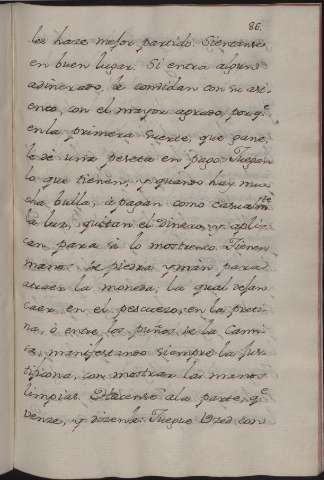 86.
les hace mejor partido. Sientanse
en buen lugar. Si entra alguno
adinerado, le combidan con su asi-
ento, con el mayor agrado, porq.e
en la primera suerte, que gane,
le dè una peseta en pago. Juegan
lo que tienen, y quando hay mu-
cha bulla, ò apagan como casualm.te
la luz, quitan el dinero, y apli-
can para sì lo mostrenco. Tienen
manos de piedra yman para
atraer la moneda, la qual dejan
caer en el pescuezo, en la preti-
na, ò entre los puños de la Cami-
sa, manifestando siempre la jus-
tificona, con mostrar las manos
limpias. Estàcense à la parte, q.e
venze, y dizenle: Juegue Usted con